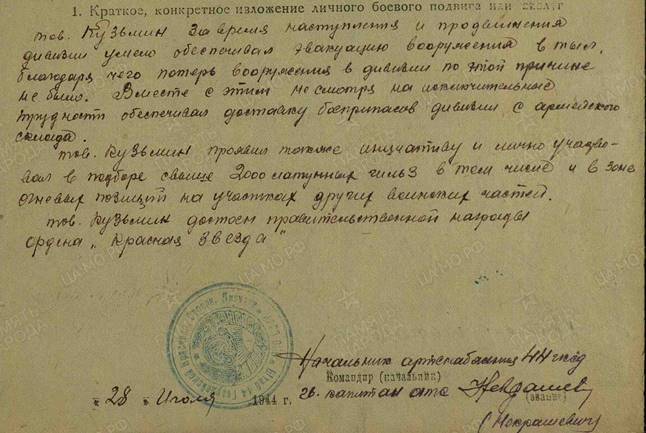 1. Краткое, конкретное изложение личного боевого подвига или заслуг
тов. Кузьмин за время наступления и продвижения
дивизии умело обеспечивал эвакуацию вооружения в тыл,
благодаря чего потерь вооружения в дивизии по этой причине
не было. Вместе с этим несмотря на исключительные
трудности обеспечивал доставку боеприпасов дивизии с армейского
склада.
тов. Кузьмин проявил также инициативу и лично участво-
вал в подборе свыше 2000 латунных гильз в том числе и в зоне
огневых позиций на участках других воинских частей.
тов. Кузьмин достоин правительственной награды
ордена „Красная Звезда"
Начальник артснабжения 44
Командир (начальник)
„28" Июля 1944 г. гв. капитан
(звание)
(Некрашевич)